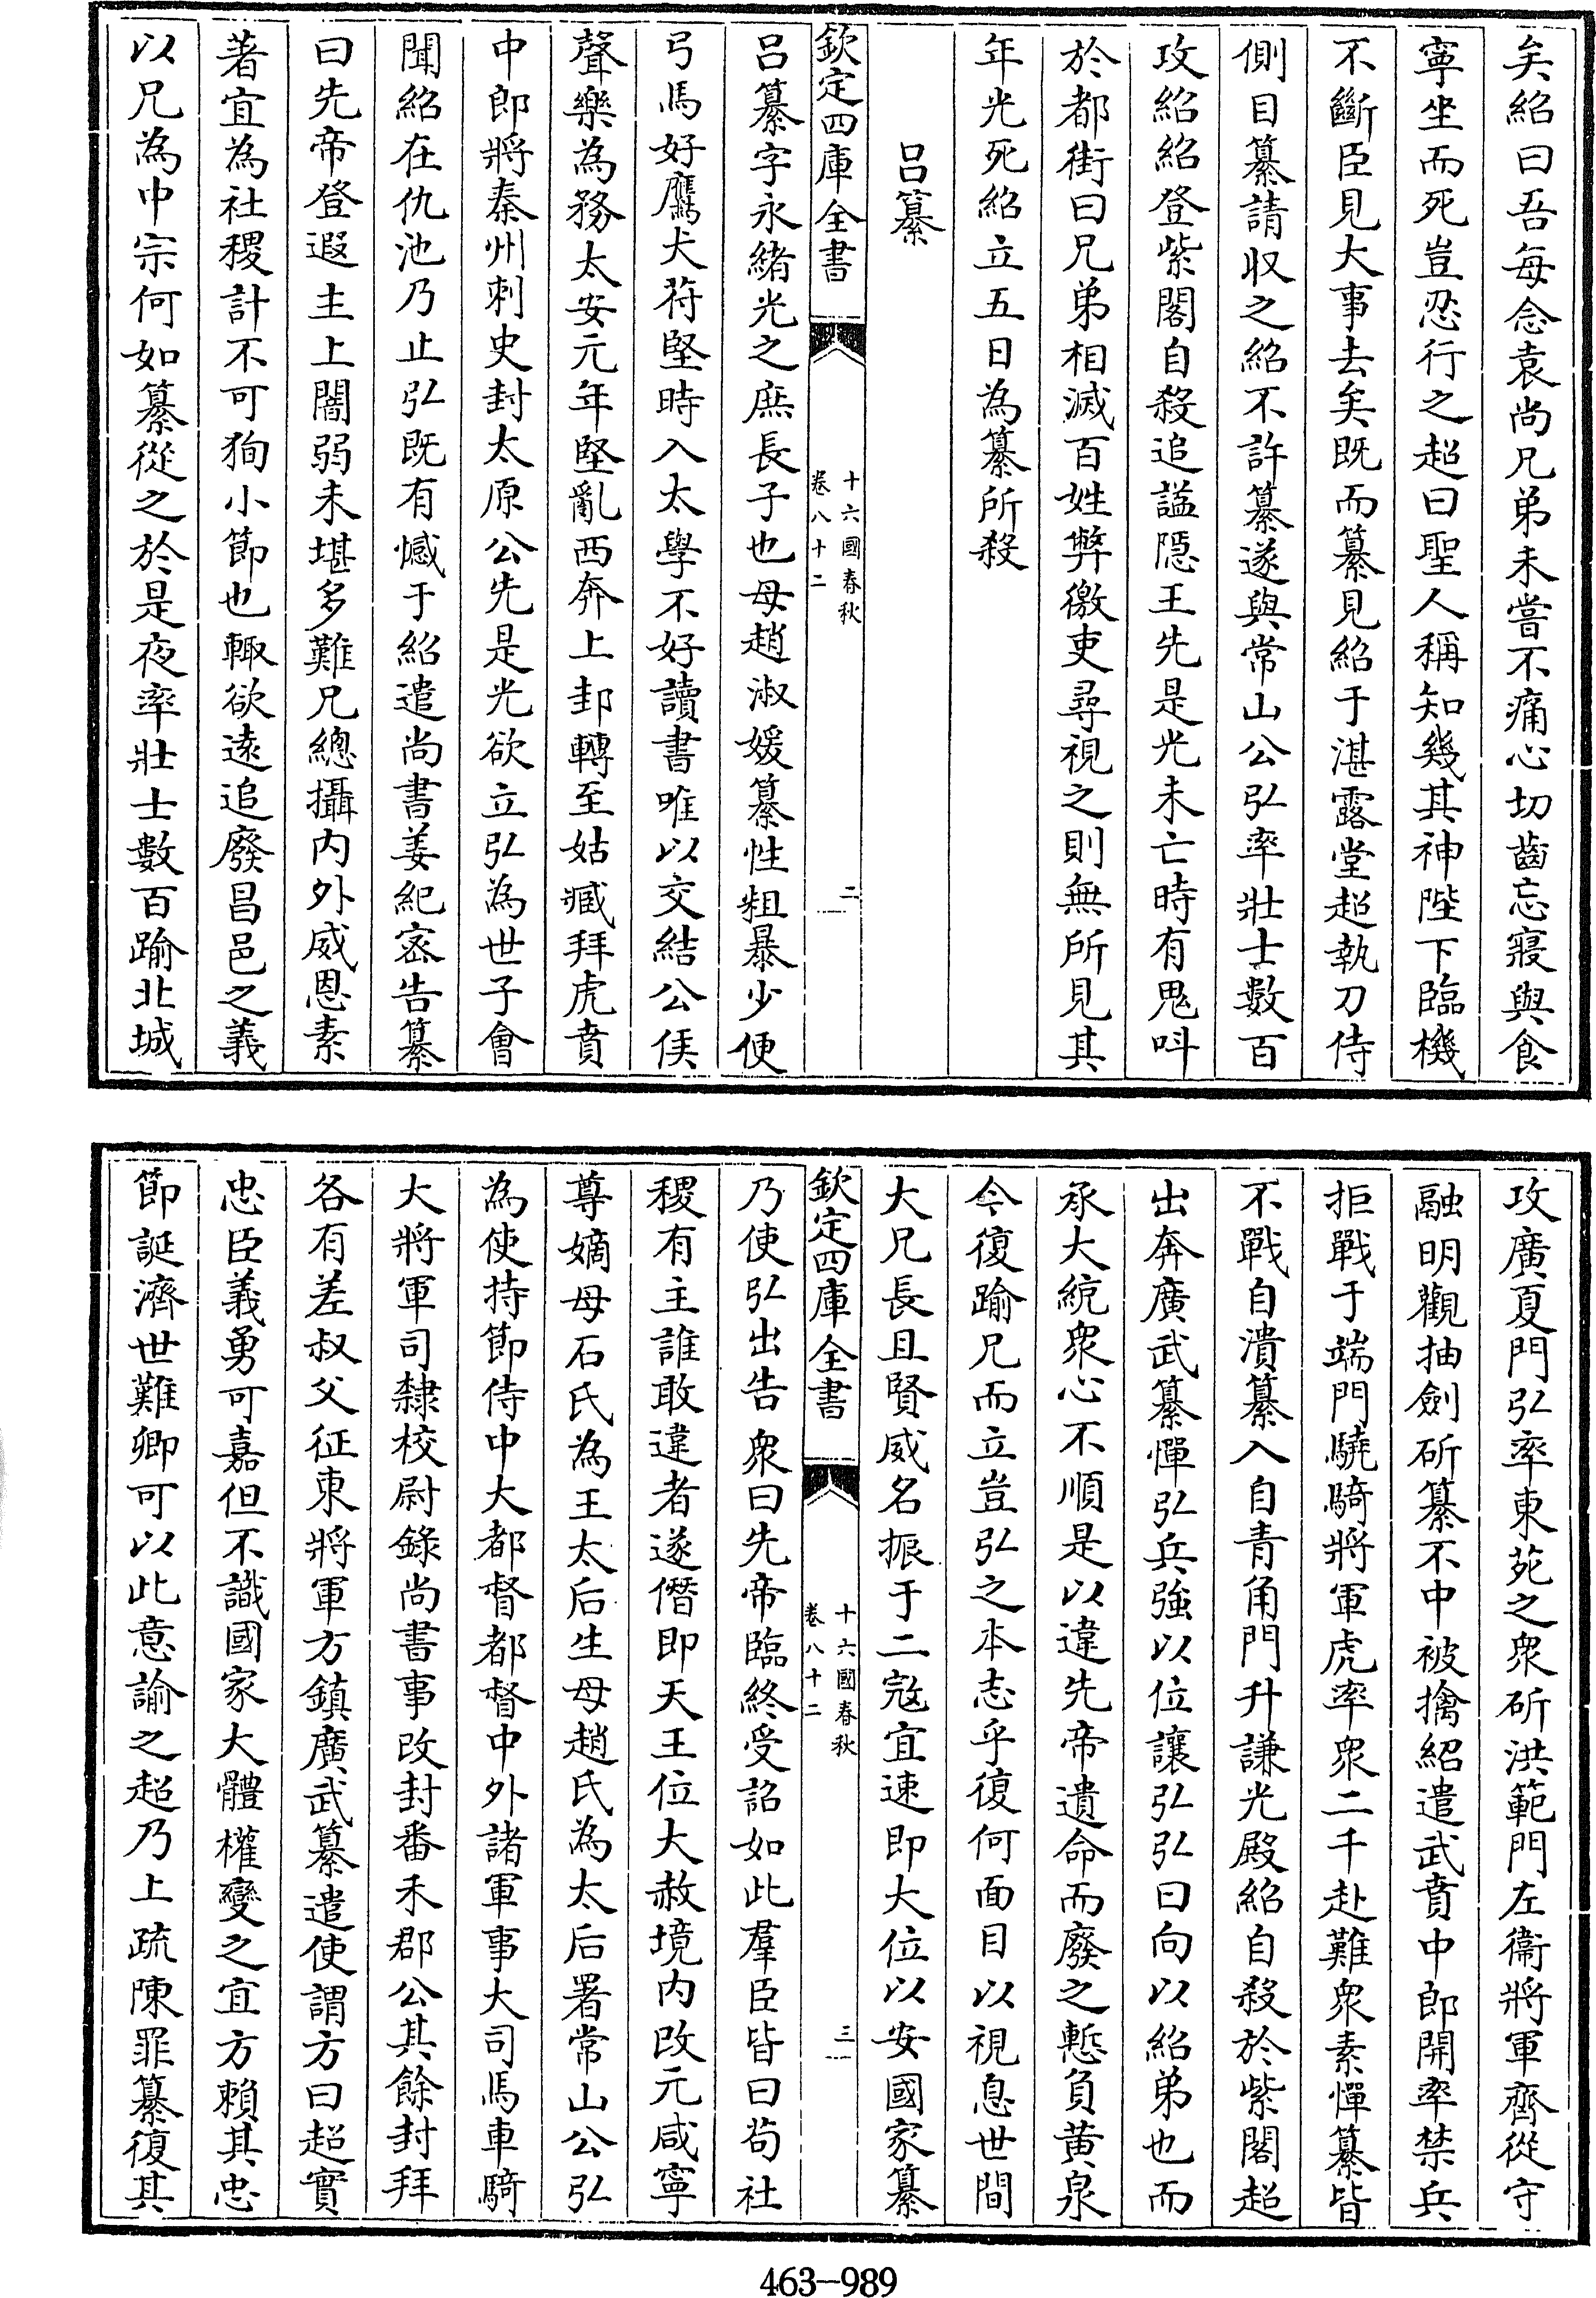 矣紹曰吾每念袁尚兄弟未嘗不痛心切齒忘寢與食
寧坐而死豈忍行之超曰聖人稱知幾其神陛下臨機
不斷臣見大事去矣既而纂見紹于湛露堂超執刀侍
側目纂請収之紹不許纂遂與常山公弘率壯士數百
攻紹紹登紫閣自殺追諡隱王先是光未亡時有鬼呌
於都街曰兄弟相滅百姓弊徼吏尋視之則無所見其
年光死紹立五日為纂所殺
吕纂
欽定四庫全書
十六國春秋
卷八十二
二
吕纂字永緒光之庶長子也母趙淑媛纂性粗暴少便
弓馬好鷹犬苻堅時入太學不好讀書唯以交結公侯
聲樂為務太安元年堅亂西奔上邽轉至姑臧拜虎賁
中郎將秦州刺史封太原公先是光欲立弘為世子會
聞紹在仇池乃止弘既有憾于紹遣尚書姜紀宻告纂
曰先帝登遐主上闇弱未堪多難兄總攝内外威恩素
著宜為社稷計不可狥小節也輙欲遠追廢昌邑之義
以兄為中宗何如纂從之於是夜率壯士數百踰北城
攻廣夏門弘率東苑之衆斫洪範門左衞將軍齊從守
融明觀抽劍斫纂不中被擒紹遣武賁中郎開率禁兵
拒戰于端門驍騎將軍虎率衆二千赴難衆素憚纂皆
不戰自潰纂入自青角門升謙光殿紹自殺於紫閣超
出奔廣武纂憚弘兵強以位讓弘弘曰向以紹弟也而
承大統衆心不順是以違先帝遺命而廢之慙負黄泉
今復踰兄而立豈弘之本志乎復何面目以視息世間
大兄長且賢威名振于二寇宜速即大位以安國家纂
欽定四庫全書
十六國春秋
卷八十二
三
乃使弘出告衆曰先帝臨終受詔如此羣臣皆曰茍社
稷有主誰敢違者遂僭即天王位大赦境内改元咸寧
尊嫡母石氏為王太后生母趙氏為太后署常山公弘
為使持節侍中大都督都督中外諸軍事大司馬車騎
大將軍司隸校尉錄尚書事改封番禾郡公其餘封拜
各有差叔父征東將軍方鎮廣武纂遣使謂方曰超實
忠臣義勇可嘉但不識國家大體權變之宜方賴其忠
節誕濟世難卿可以此意諭之超乃上疏陳罪纂復其
463-989